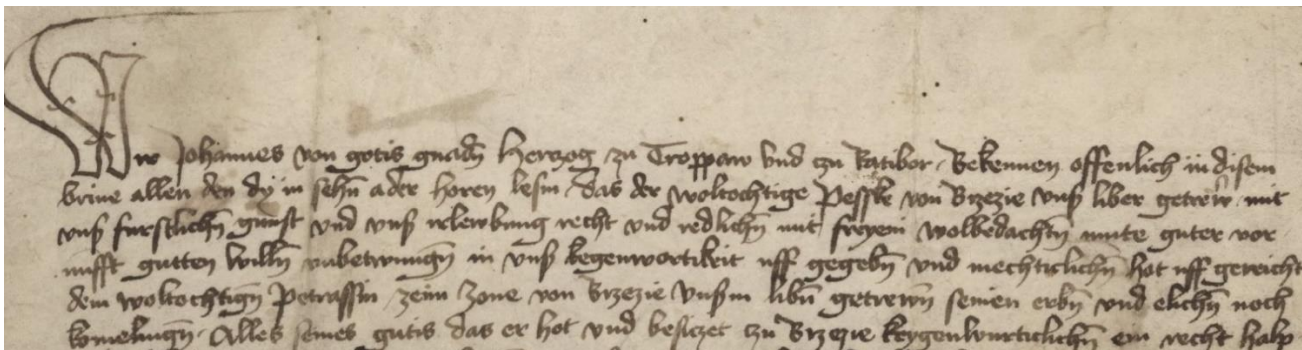 Wir Johannes von gotis gnadñ Herczog zu Troppaw vnd czu Ratibor Bekennen offenlich in disem
brive allen den dy in sehñ ader horen lesin das der woltochtige Pesske von Brzezie vnß liber getrewir mit
vnß furstlichñ gunst vnd vnß irlewbung recht vnd redlichñ mit freyem wolbedachtñ mute guter vor
nufft gutten willñ vnbetwungñ in vnß kegenwortikeit uff gegebñ vnd mechticlichñ hot uff gereicht
dem woltochtigñ Petrassin zeim zone von Brzezie vnßm libñ getrewñ seinen erbñ vnd elichñ noch
komelingñ Alles seines gutis das er hot vnd besiczet czu Brzezie keygenwurticlichñ ein recht halp